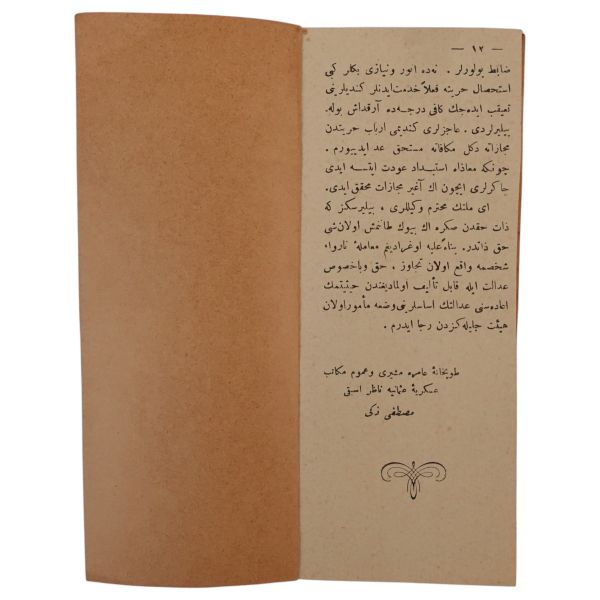 — ١٢ —
ضابط بولورلر . نه‌ده انور ونیازی بكلر كبی
استحصال حریته فعلاً خدمت ایدنلر كندیلرینی
تعقیب ایده‌جك كافی درجه‌ده آرقداش بوله‌
بیلیرلردی . عاجزلری كندیمی ارباب حریتدن
مجازاته دكل مكافاته مستحق عد ایدییورم .
چونكه معاذاه استبداد عودت ایتسه ایدی
چاكرلری ایچون اك آغیر مجازات محقق ایدی .
ای ملتك محترم وكیللری ، بیلیرسكز كه
ذات حقدن صكره اك بیوك طانلمش اولان شی
حق ذاتدر . بناءً علیه اوغرادیغم معاملهٔ ناروا ،
شخصمه واقع اولان تجاوز ، حق وباخصوص
عدالت ایله قابل تألیف اولمادیغندن حیثیتمك
اعاده‌سنی عدالتك اساسلرینی وضعه مأمور اولان
هیئت جلیله‌كزدن رجا ایدرم .
طوبخانهٔ عامره مشیری وعموم مكاتب
عسكریهٔ عثمانیه ناظر اسبقی
مصطفی زكی